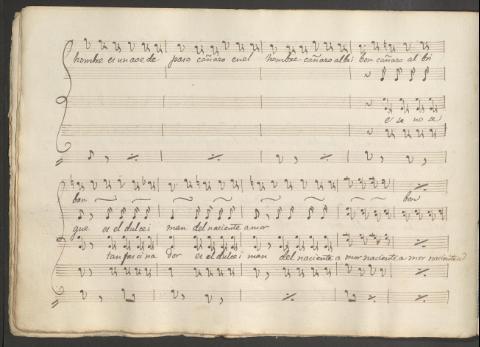 hombre es un ave de paso cañaro en el hombre cañaro albi bon cañaro al bri
e se no se
bon bon
que es el dulce i man del naciente amor
tan fas ci na dor es el dulce i man del naciente a mor naciente a mor naciente a